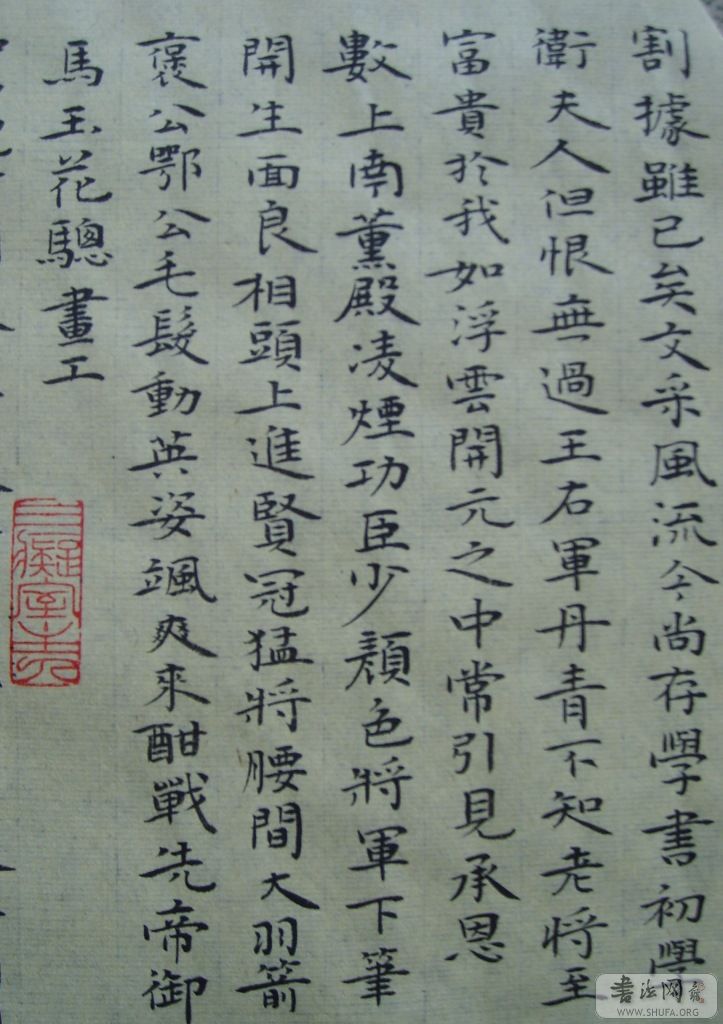 割據雖已矣文采風流今尚存學書初學
衛夫人但恨無過王右軍丹青不知老將至
富貴於我如浮雲開元之中常引見承恩
數上南薰殿凌煙功臣少顏色將軍下筆
開生面良相頭上進賢冠猛將腰間大羽箭
褒公鄂公毛髮動英姿颯爽來酣戰先帝御
馬玉花驄畫工
書法网
WWW.SHUFA.ORG